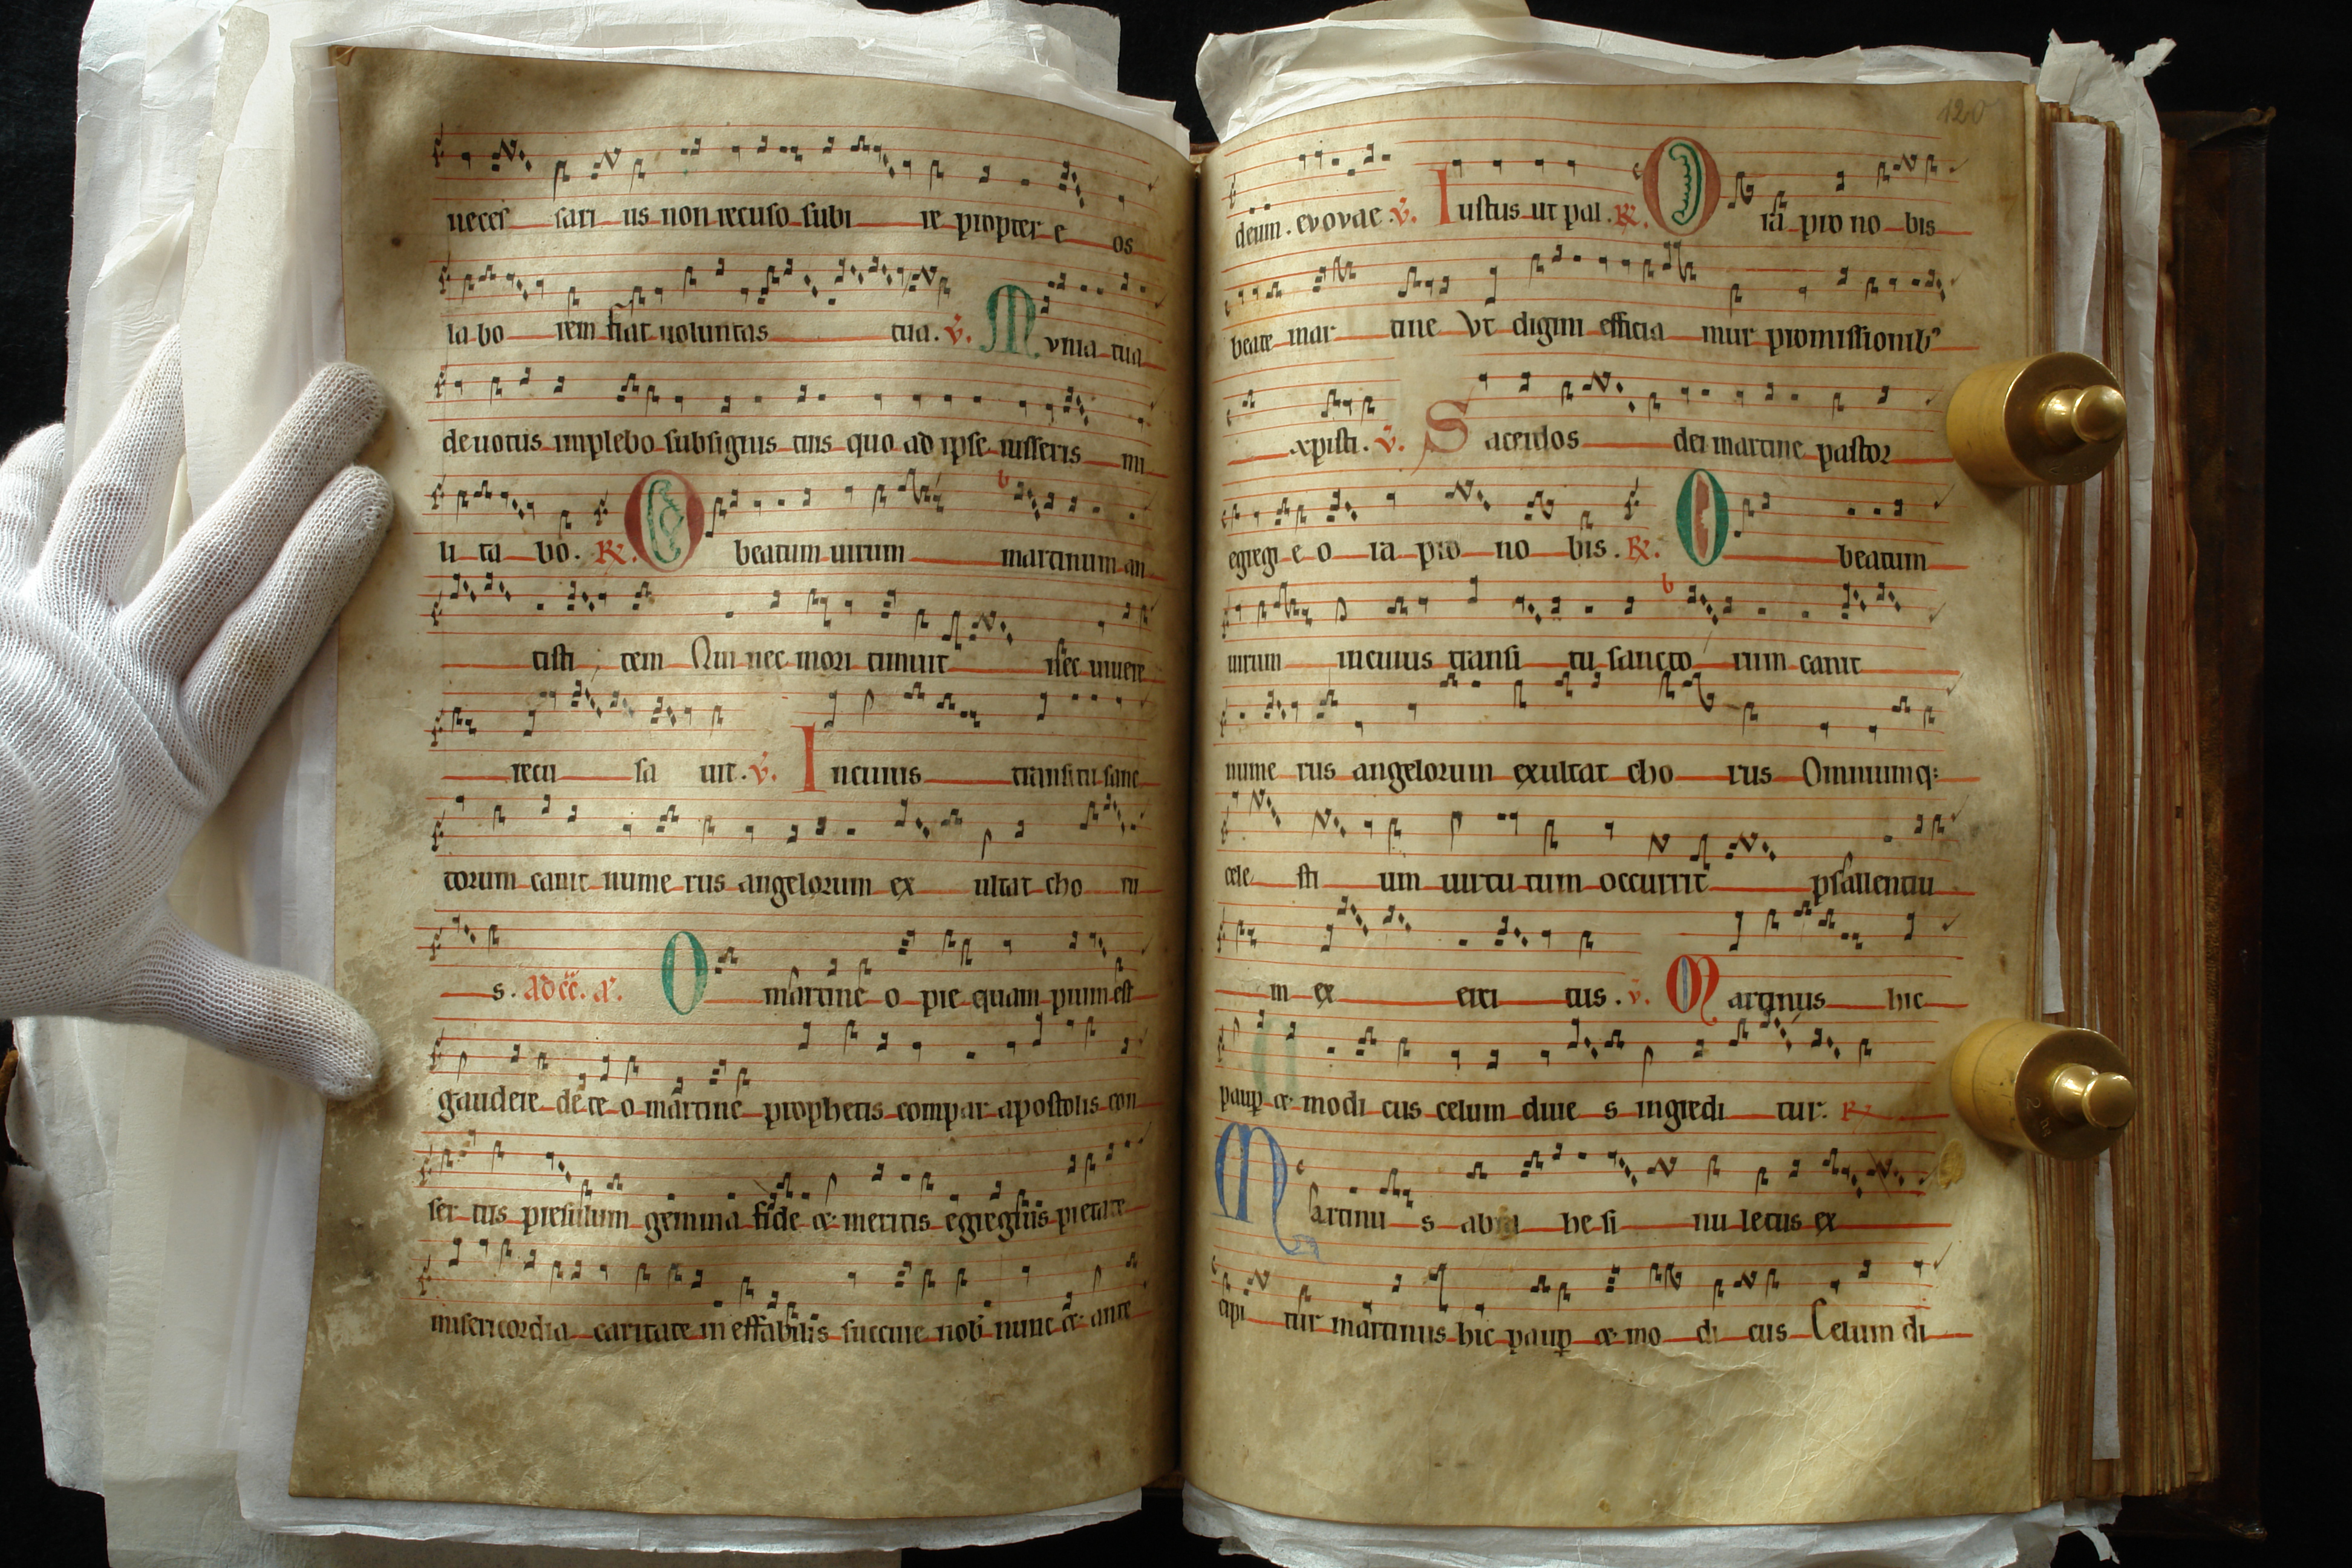 neces sari us non recuso subi re propter e os
la bo rem fiat uoluntas tua. v. Mvnia tua
deuotus implebo subsignis tuis quo ad ipse iusseris mi
li ta bo. R. O beatum uirum martinum an
tisti tem Qui nec mori timuit nec uiuere
recu sa uit. v. Incuius transitu sanc
torum canit nume rus angelorum ex ultat cho ru
s. ad cc. a. O martine o pie quam pium est
gaudere de te o martine prophetis compar apostolis con
ser tus presulum gemma fide & meritis egregius pietate
misericordia caritate ineffabilis succurre nob nunc & ante
120
deum. evovae. v. Iustus ut pal. R. Ora pro no bis
beate mar tine Vt digni efficia mur promissionib9
xpisti. v. Sacerdos dei martine pastor
egregi e o ra pro no bis. R. O beatum
uirum incuius transi tu sancto rum canit
nume rus angelorum exultat cho rus Omniumq:
cele sti um uirtu tum occurrit psallentiu
m ex erci tus. v. Martinus hic
paup & modi cus celum diue s ingredi tur. R.
Martinu s abra he si nu letus ex
cipi tur martinus hic paup & mo di cus Celum di